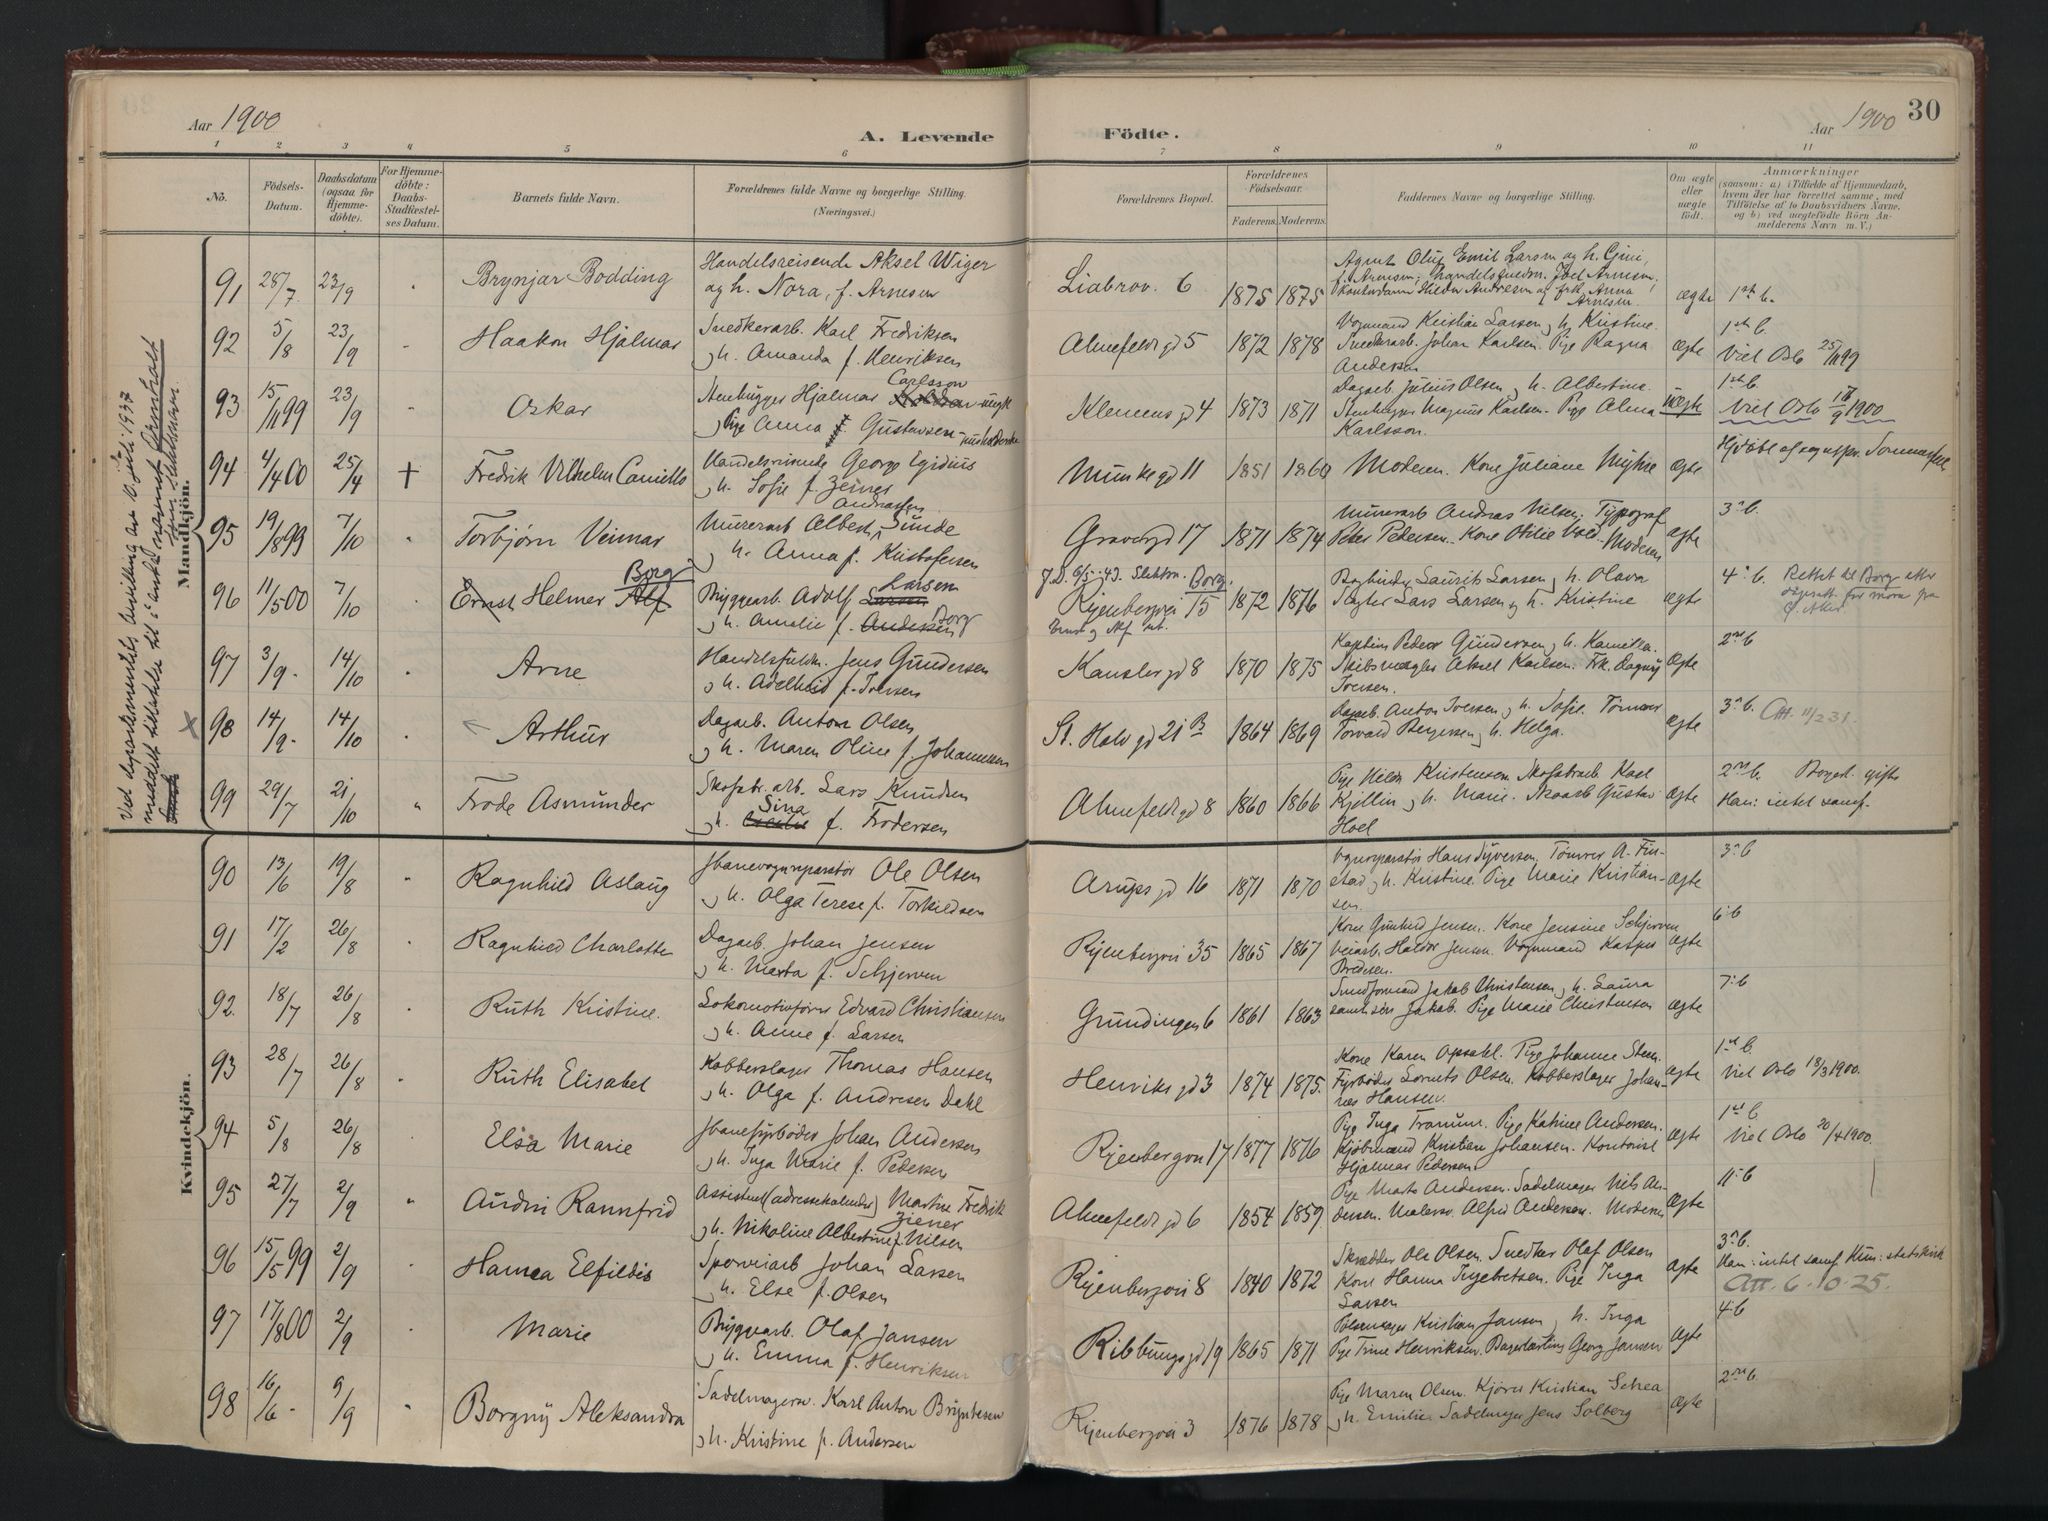 Aar 1900
A. Levende
Födte.
Aar 1900
30
1 2 3 4 5 6 7 8 9 10 11
No.
Födsels-
Datum.
Daabsdatum
(ogsaa for
Hjemme-
döbte).
For Hjemme-
döbte:
Daabs-
Stadfæstel-
ses Datum.
Barnets fulde Navn.
Forældrenes fulde Navne og borgerlige Stilling.
(Næringsvei.)
Forældrenes Bopæl.
Forældrenes
Födselsaar.
Faderens. Moderens.
Faddernes Navne og borgerlige Stilling.
Om ægte
eller
uægte
födt.
Anmærkninger
(saasom: a) i Tilfælde af Hjemmedaab,
hvem der har forrettet samme, med
Tilföielse af to Daabsvidners Navne,
og b) ved uægtefödte Börn An-
melderens Navn m. V.)
Mandkjön.
91 28/7 23/9 Brynjar Bodding
Handelsreisende Aksel Wiger
og h. Nora, f. Arnesen
Liabrov. 6 1875 1875
Agent Oluf Emil Larsen og h. Gini,
f. Arnesen; Handelsfuldm. Joel Arnesen;
Hilda Andresen og frk. Anna
Arnesen.
ægte 1ste b.
92 5/8 23/9 Haakon Hjalmar
Snedkerarb. Karl Fredriksen
h. Amanda f. Henriksen
Almefeldt gd 5 1872 1878
Vognmand Kristian Larsen h. Kristine.
Snedkerarb. Johan Karlsen. Pige Ragna
Andersen
ægte 1ste b.
Viet Oslo 25/11 99
93 15/11 99 23/9 Oskar
Stenhugger Hjalmar Carlsson
Pige Anna f. Gustavsen
Klemens gd 4 1873 1871
Dagarb. Julius Olsen h. Albertine.
Stenhugger Magnus Karlsen. Pige Alma
Karlsson.
uægte 1ste b.
Viet Oslo 16/9 1900
94 4/4 00 25/4 + Fredrik Vilhelm Camillo
Handelsreisende Georg Egidius
h. Sofie f. Zeiner
Munke gd 11 1851 1860
Moderen. Kone Juliane Myhre
ægte
95 19/8 99 7/10 Torbjørn Veimar
Murerarb Albert Andreassen Sunde
h. Anna f. Kristofersen
Graver gd 17 1871 1874
Murerarb Andreas Nilsen. Typograf
Peter Pedersen. Kone Otilie Vold. Moderen
ægte 3. b.
96 11/5 00 7/10 Ernst Helmer Alf Borg
Bryggearb. Adolf Larsen Larsen
h. Amalie f. Andersen Borg
J.D. 6/5-43. Slektsn. Borg.
Ryenbergvei 15 1872 1876
Ernst og Alf ut.
Bogbinder Laurits Larsen h. Olava
Lars Larsen og h. Kristine
ægte 4. b. Rettet til Borg etter
97 3/9. 14/10 Arne
Handelsfuldm. Jens Gundersen
h. Adelheid f. Iversen
Kansler gd 8 1870 1875
Kaptein Peder Gundersen h. Kamilla.
Skibsmægler Aksel Karlsen. Frk. Dagny
Iversen.
ægte 2. b
98 14/9. 14/10 Arthur
Dagarb. Anton Olsen
h. Maren Oline f. Johannesen
St. Halv gd 21 B 1864 1869
Dagarb. Anton Iversen h. Sofie. Tømrer
Torvald Bergersen h. Helga.
ægte 3. b. Att. 11/2 31.
99 29/7 21/10 Frode Asmunder
Skofabr. arb. Lars Knudsen
h. Sina f. Frodersen
Almefeldt gd 8 1860 1866
Pige Hilda Kristensen. Skofabrarb Karl
Kjellin h. Marie. Skoarb Gustav
Hoel
ægte 2. b. Borgerl. gifte
Han: intet samf.
Kvindekjön.
90 13/6 19/8 Ragnhild Aslaug
Jbanevognreparatör Ole Olsen
h. Olga Terese f. Torkildsen
Arups gd 16 1871 1870
Vognreparatör Hans Syversen. Tømrer A. Fin-
stad h. Kristine. Pige Marie Kristian-
sen.
ægte 3. b
91 17/2 26/8 Ragnhild Charlotte
Dagarb. Johan Jensen
h. Marta f. Schjerven
Ryenbergvei 35 1865 1867
Kone Gunhild Jensen. Kone Jensine Schjerven
Veiarb. Haldor Jensen. Vognmand Kasper
Bredesen.
ægte 6. b
92. 18/7 26/8 Ruth Kristine.
Lokomotivförer Edvard Christiansen
h. Anne f. Larsen
Grundingen 6 1861 1863
Jakob Christensen h. Laura
Jakob. Pige Marie Christensen
ægte 7. b
93 28/7 26/8 Ruth Elisabet
Kobberslager Thomas Hansen
h. Olga f. Andresen Dahl
Henriks gd 3 1874 1875.
Kone Karen Opsahl. Pige Johanne Steen.
Fyrböder Lorents Olsen. Kobberslager Johan-
nes Hansen.
ægte 1ste b
Viet Oslo 18/3 1900.
94 5/8 26/8 Elsa Marie
Jbanefyrböder Johan Andersen
h. Inga Marie f. Pedersen
Ryenbergvei 17 1877 1876
Pige Inga Pige Katrine Andersen.
Kjöbmand Kristian Johansen. Kontorist
Hjalmar Pedersen
ægte 1ste b
Viet Oslo 20/4 1900.
95 27/7 2/9 Audni Rannfrid
Assistent (adressekalender) Martin Fredrik
Ziener
h. Nikoline Albertine f. Nilsen
Almefeldt gd 6 1854 1859.
Pige Marta Andersen. Sadelmager Nils An-
dersen. Malersv. Alfred Andersen. Moderen
ægte 11. b
96 15/5 99 2/9 Hanna Elfildis
Sporveiarb Johan Larsen
h. Else f. Olsen
Ryenbergvei 8 1840 1872
Skrædder Ole Olsen. Snedker Olaf Olsen
Kone Hanna Ingebretsen. Pige Inga
Larsen
ægte 3. b.
Han: intet samf. Hun: statskirk
Att. 6-10-25.
97 17/8 00 2/9 Marie
Bryggearb. Olaf Jansen
h. Emma f. Henriksen
Ribbungs gd 19 1865 1871
Pölsemager Kristian Jansen h. Inga
Pige Trine Henriksen. Bagerlærling Georg Jansen
ægte 4. b
98 16/6- 9/9 Borgny Aleksandra
Sadelmagersv. Karl Anton Bryntesen
h. Kristine f. Andersen
Ryenbergvei 3 1876 1878
Pige Maren Olsen. Kjörer Kristian
h. Emilie. Sadelmager Jens Solberg
ægte 2. b